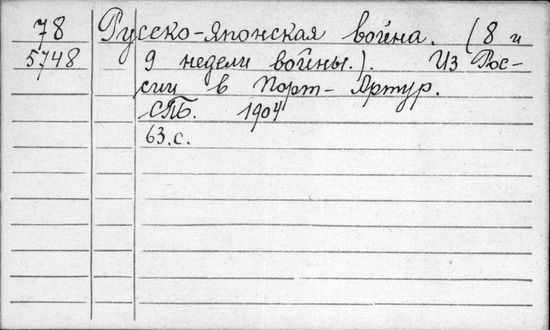 78 Русско-Японская война. (8 и
5748 9 недели войны.). Из Рос-
сии в Порт-Артур.
СПБ. 1904
63.с.